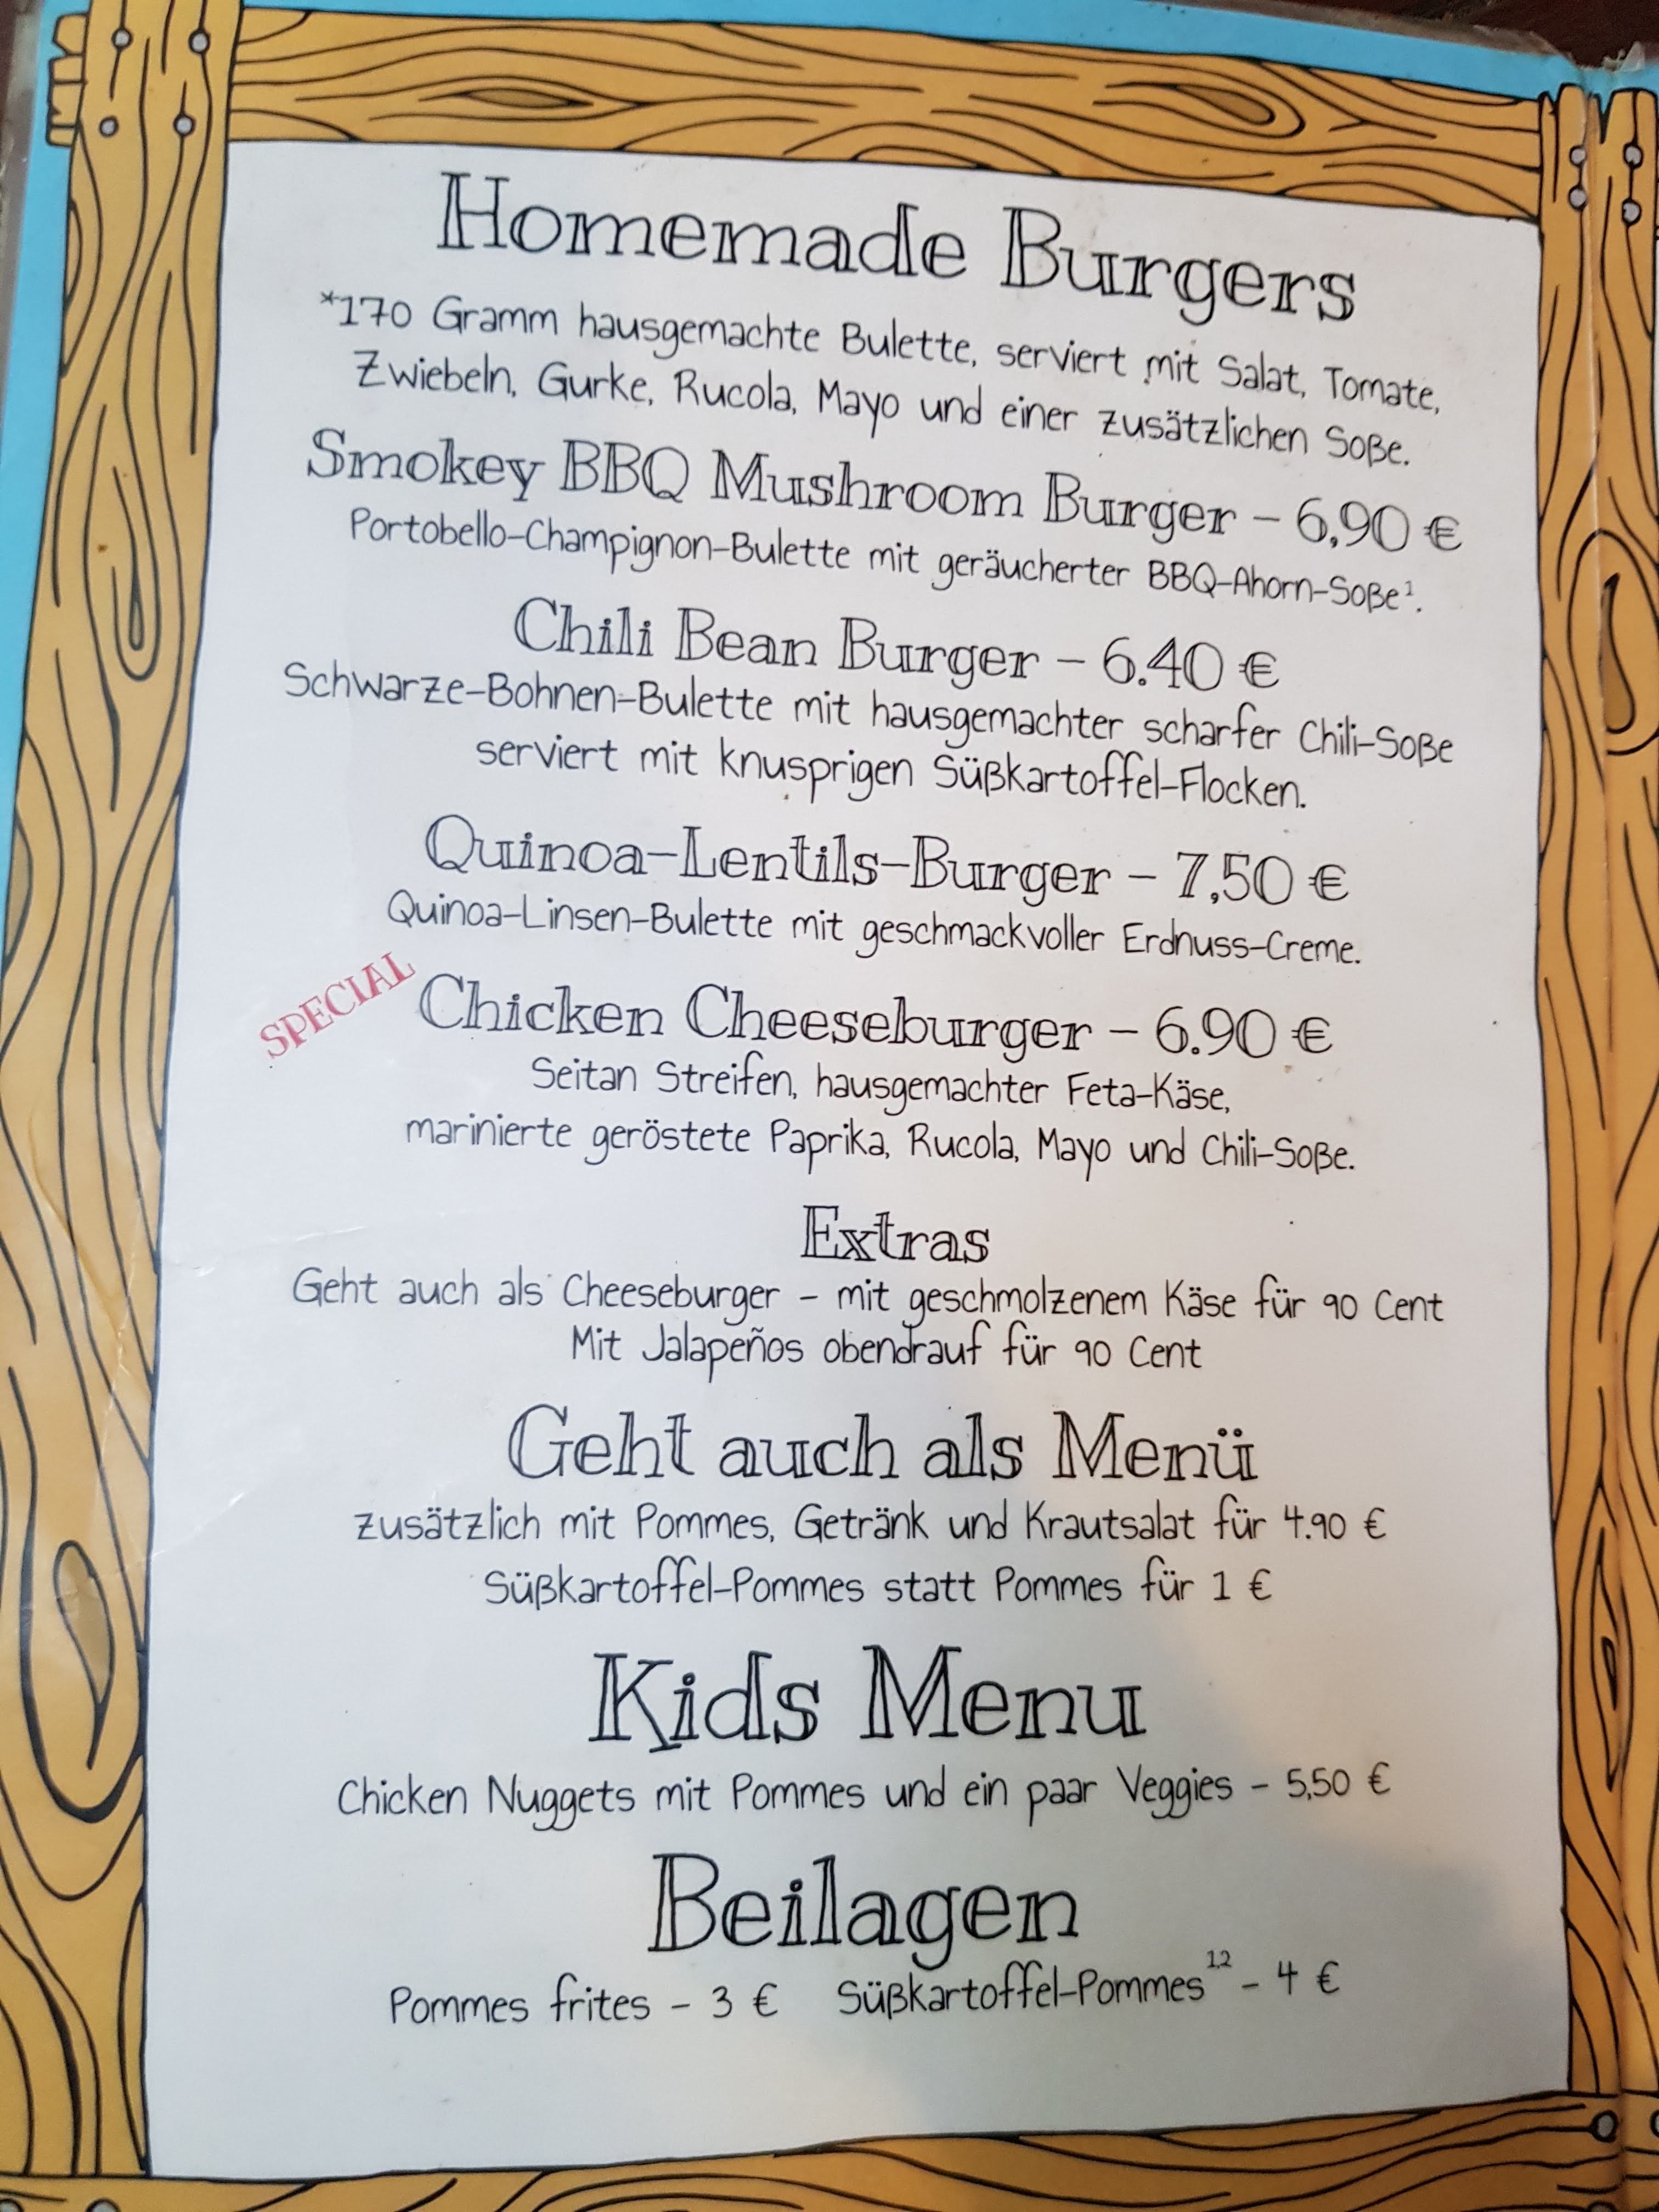 Homemade Burgers
*170 Gramm hausgemachte Bulette, serviert mit Salat, Tomate,
Zwiebeln, Gurke, Rucola, Mayo und einer zusätzlichen Soße.
Smokey BBQ Mushroom Burger – 6,90 €
Portobello-Champignon-Bulette mit geräucherter BBQ-Ahorn-Soße¹.
Chili Bean Burger – 6.40 €
Schwarze-Bohnen-Bulette mit hausgemachter scharfer Chili-Soße
serviert mit knusprigen Süßkartoffel-Flocken.
Quinoa-Lentils-Burger – 7,50 €
Quinoa-Linsen-Bulette mit geschmackvoller Erdnuss-Creme.
SPECIAL
Chicken Cheeseburger – 6.90 €
Seitan Streifen, hausgemachter Feta-Käse,
marinierte geröstete Paprika, Rucola, Mayo und Chili-Soße.
Extras
Geht auch als Cheeseburger – mit geschmolzenem Käse für 90 Cent
Mit Jalapeños obendrauf für 90 Cent
Geht auch als Menü
zusätzlich mit Pommes, Getränk und Krautsalat für 4.90 €
Süßkartoffel-Pommes statt Pommes für 1 €
Kids Menu
Chicken Nuggets mit Pommes und ein paar Veggies – 5,50 €
Beilagen
Pommes frites – 3 € Süßkartoffel-Pommes¹,² – 4 €